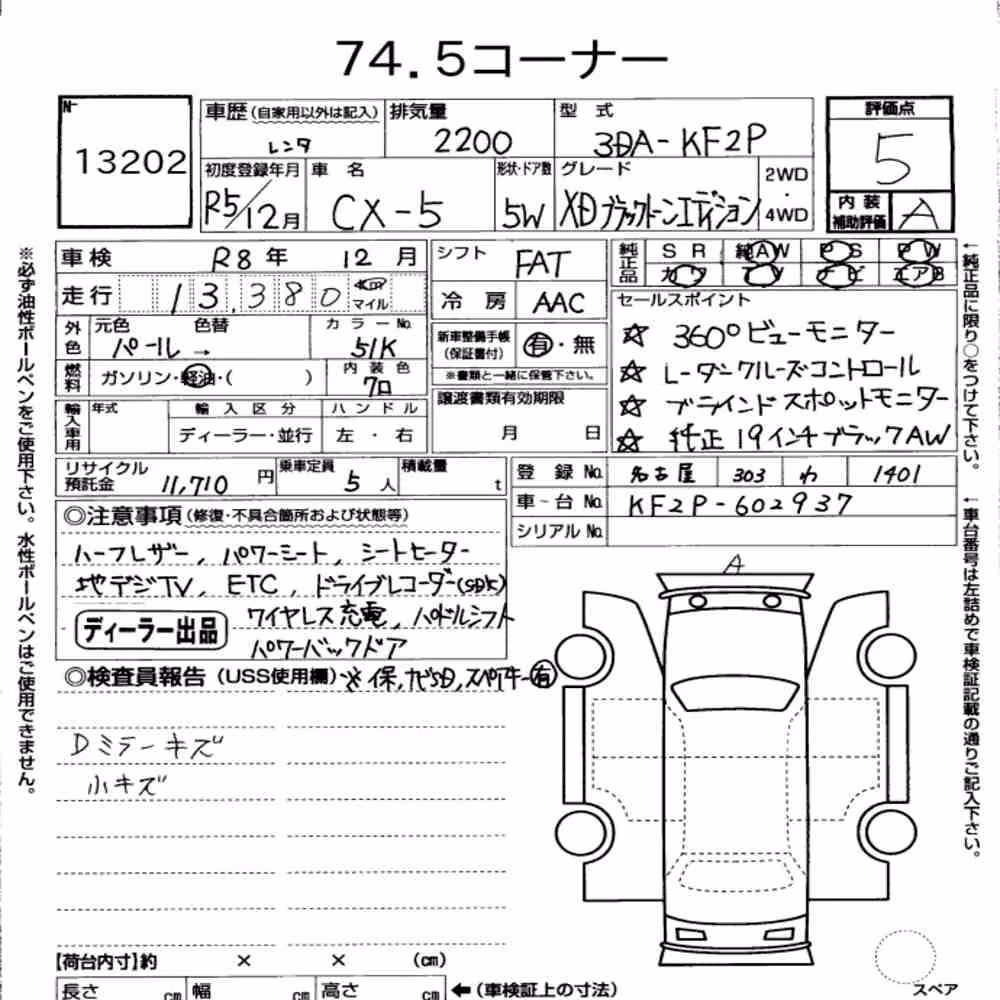 74.5コーナー
No.
13202
車歴(自家用以外は記入) 排気量 型 式 評価点
レンタ 2200 3DA-KF2P 5
初度登録年月 車 名 形状・ドア数 グレード 2WD・4WD 内装補助評価
R5/12月 CX-5 5W XDブラックトーンエディション A
車検 R8年 12月 シフト FAT 純正品 SR 純AW PS PW
カワ TV ナビ エアB
走行 13,380 km マイル 冷房 AAC セールスポイント
外色 元色 色替 カラーNo. 新車整備手帳(保証書付) 有・無
パール→ 51K ※書類と一緒に保管下さい。
☆ 360°ビューモニター
☆ レーダークルーズコントロール
☆ ブラインドスポットモニター
☆ 純正19インチブラックAW
燃料 ガソリン・軽油・( ) 内装色 クロ 譲渡書類有効期限
月 日
輸入車用 年式 輸入区分 ハンドル
ディーラー・並行 左・右
リサイクル預託金 11,710円 乗車定員 5人 積載量 t
登録No. 名古屋 303 わ 1401
車台No. KF2P-602937
シリアルNo.
◎注意事項(修復・不具合箇所および状態等)
ハーフレザー, パワーシート, シートヒーター
地デジTV, ETC, ドライブレコーダー(SD欠)
ディーラー出品 ワイヤレス充電, パドルシフト
パワーバックドア
◎検査員報告(USS使用欄)※保,ナビSD,スペアキー有
Dミラーキズ
小キズ
A
【荷台内寸】約 × × (cm)
長さ cm 幅 cm 高さ cm ←(車検証上の寸法)
スペア
※必ず油性ボールペンをご使用下さい。水性ボールペンはご使用できません。
←純正品に限り○をつけて下さい。
←車台番号は左詰めで車検証記載の通りご記入下さい。